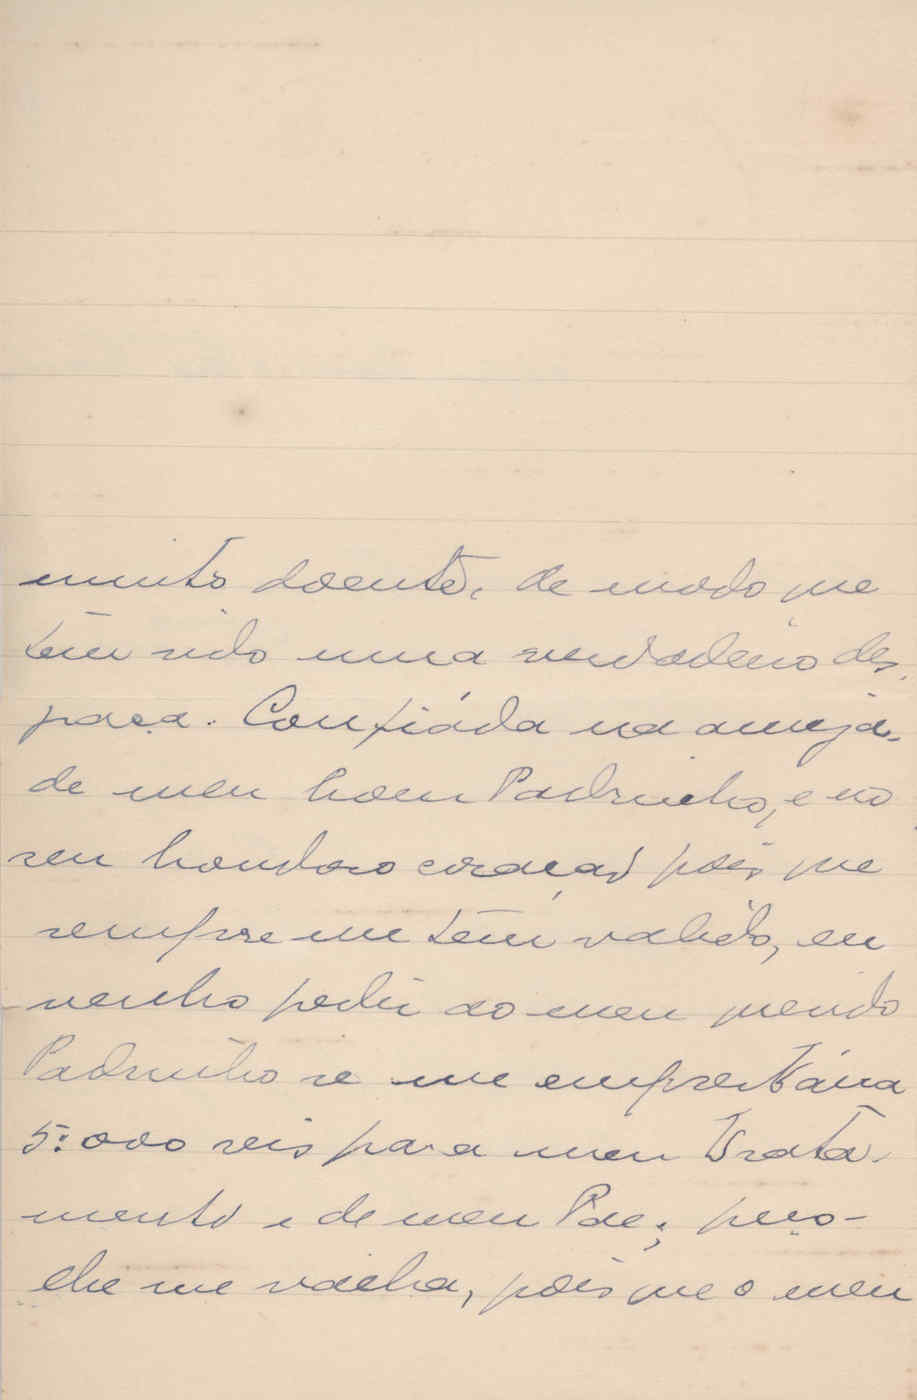 muito doente, de modo que
têm sido uma verdadeiro des-
graça. Confiáda na amizade
de meu bom Padrinho, e no
seu bondoso coração pois que
sempre me têm valido, eu
venho pedir ao meu querido
Padrinho se me emprestária
5:000 reis para meu trata-
mento e de meu Pae; peço-
lhe me valha, pois que o meu